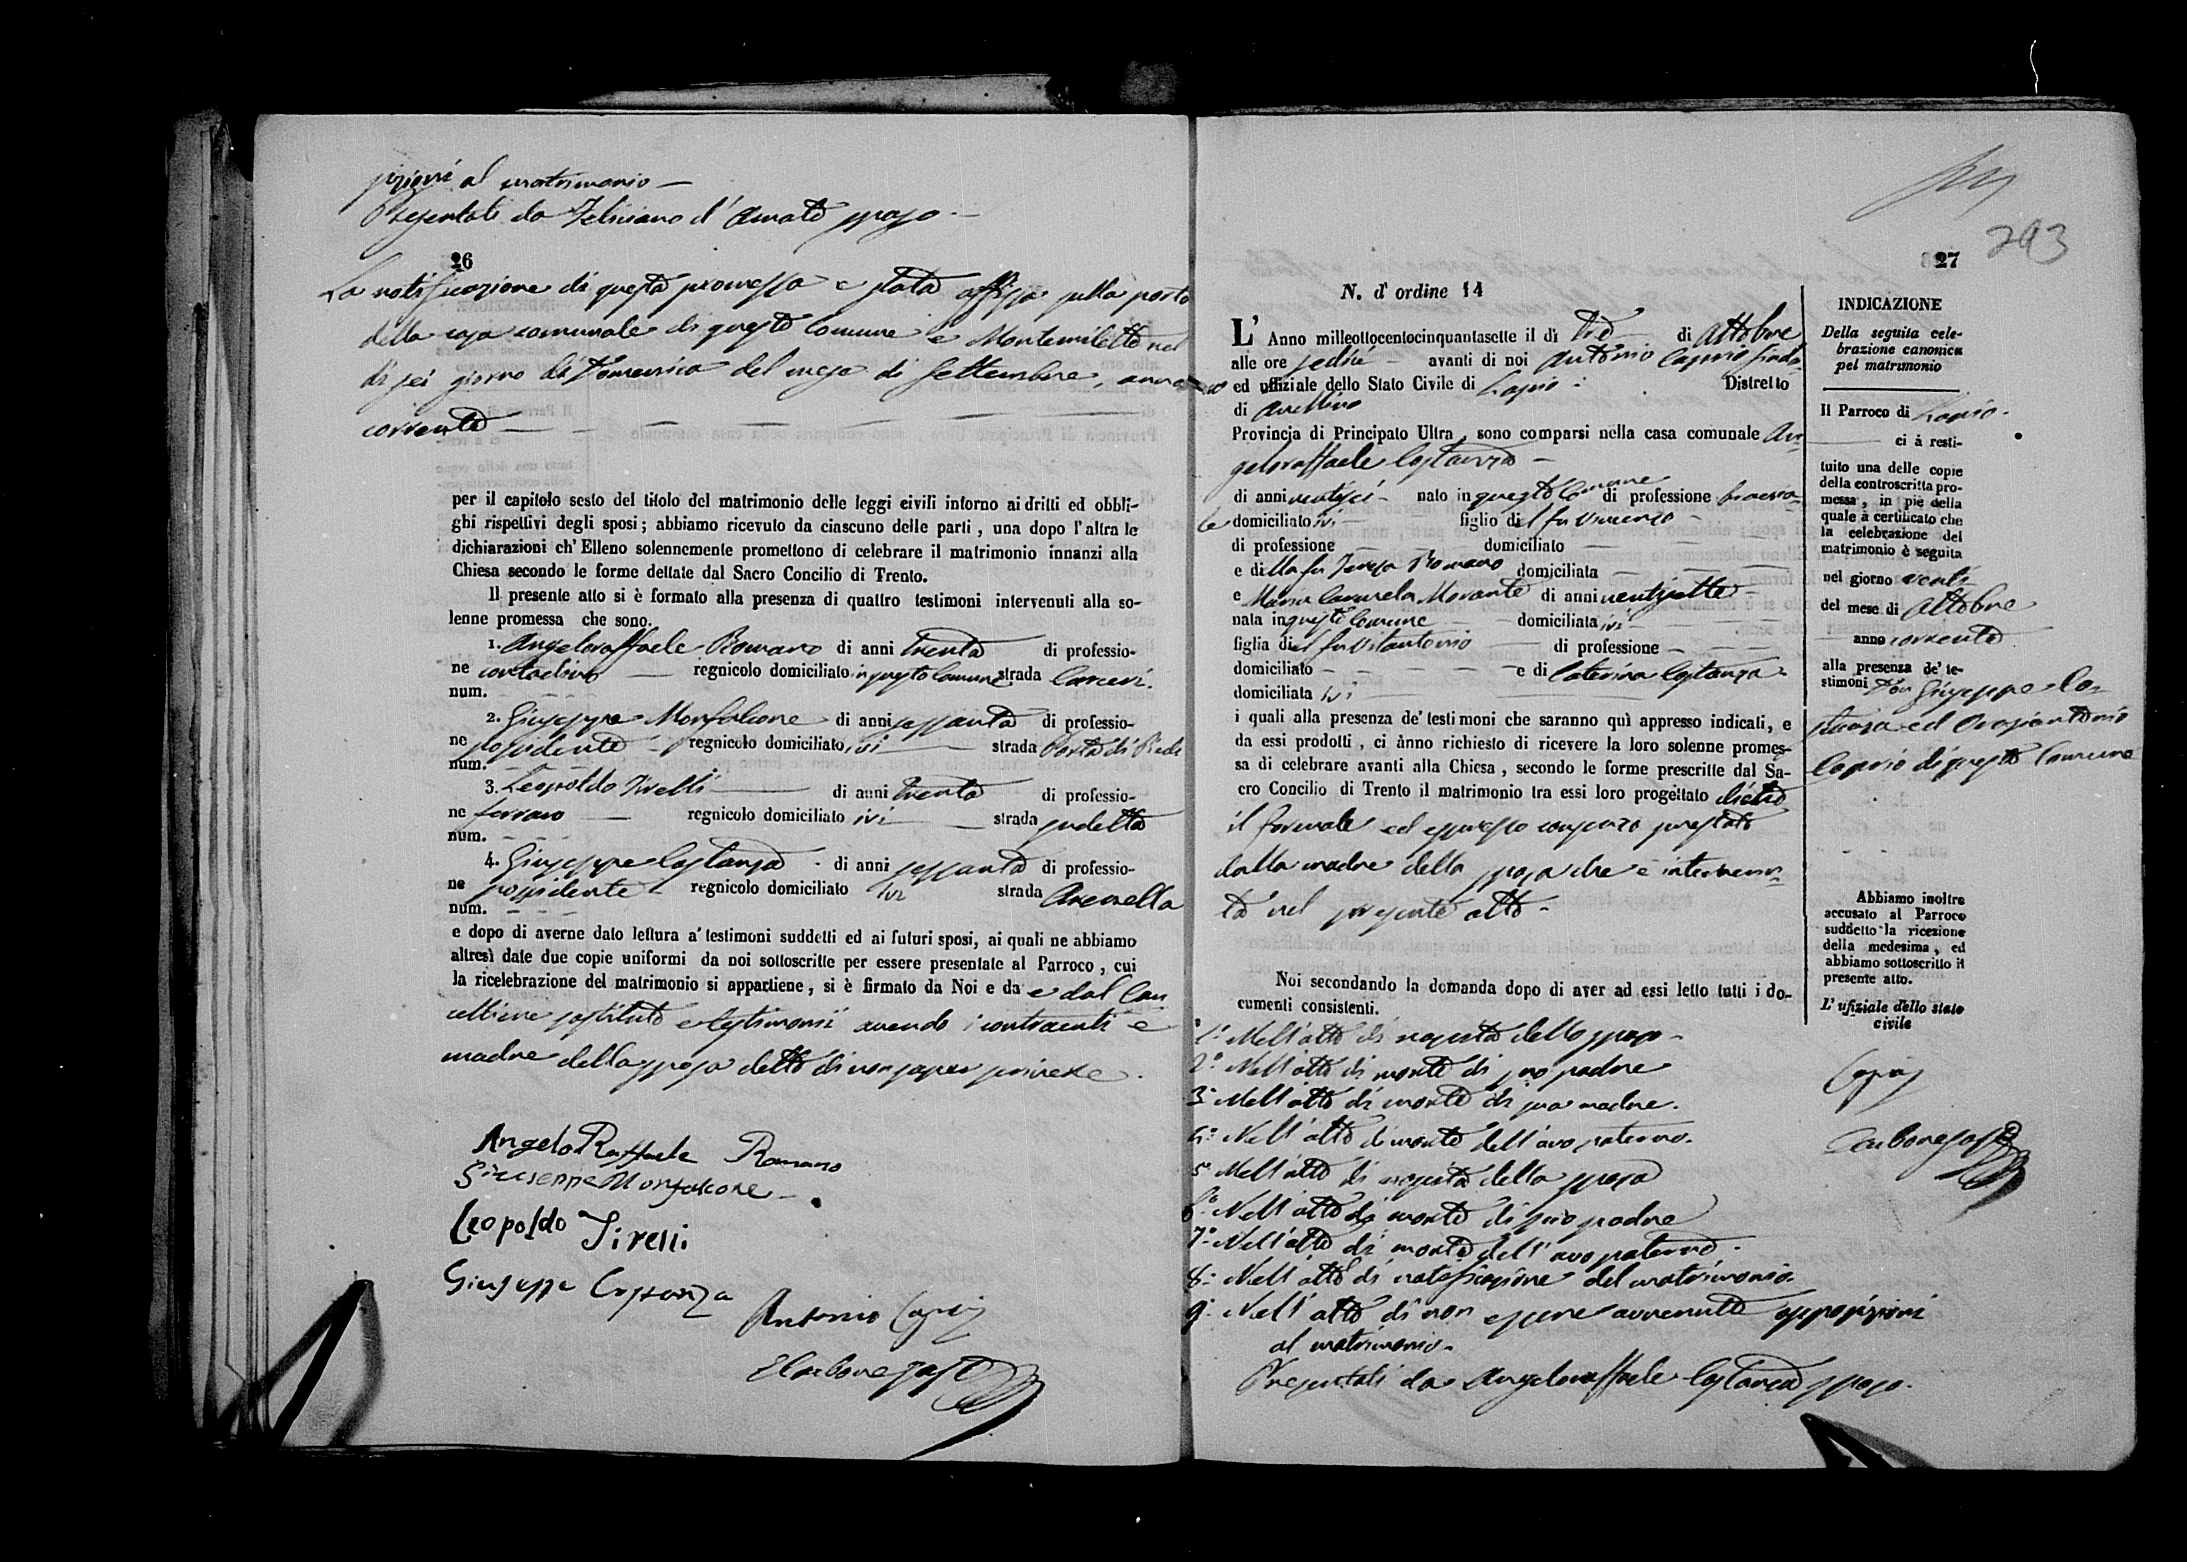 al matrimonio —
Presentati da Feliciano d'Amato sposo —
26
La notificazione di questa promessa è stata affissa sulla porta
della casa comunale di questo Comune e Montemiletto nel
di sei giorno di Domenica del mese di Settembre, anno
corrente —
per il capitolo sesto del titolo del matrimonio delle leggi civili intorno ai dritti ed obbli-
ghi rispettivi degli sposi; abbiamo ricevuto da ciascuno delle parti, una dopo l'altra le
dichiarazioni ch'Elleno solennemente promettono di celebrare il matrimonio innanzi alla
Chiesa secondo le forme dettate dal Sacro Concilio di Trento.
Il presente atto si è formato alla presenza di quattro testimoni intervenuti alla so-
lenne promessa che sono.
1. Angeloraffaele Romano di anni trenta di professio-
ne contadino — regnicolo domiciliato in questo Comune strada Carceri.
num.
2. Giuseppe Monfalcone di anni sessanta di professio-
ne possidente — regnicolo domiciliato ivi — strada Porta di
num.
3. Leopoldo Tirelli — di anni trenta di professio-
ne ferraro — regnicolo domiciliato ivi — strada
num.
4. Giuseppe Costanza - di anni sessanta di professio-
ne possidente - regnicolo domiciliato ivi strada Arenella
num.
e dopo di averne dato lettura a' testimoni suddetti ed ai futuri sposi, ai quali ne abbiamo
altresì date due copie uniformi da noi sottoscritte per essere presentate al Parroco, cui
la ricelebrazione del matrimonio si appartiene, si è firmato da Noi e da e dal Can-
celliere sostituto e testimonii avendo i contraenti e
madre della sposa detto di non saper scrivere.
Angelo Raffaele Romano
Giuseppe Monfalcone
Leopoldo Tirelli
Giuseppe Costanza
Antonio Caprio
293
27
N. d'ordine 14
L'Anno milleottocentocinquantasette il dì tre — di Ottobre
alle ore sedici — avanti di noi Antonio Caprio Sinda-
co ed uffiziale dello Stato Civile di Lapio - Distretto
di Avellino
Provincia di Principato Ultra, sono comparsi nella casa comunale An-
geloraffaele Costanza —
di anni ventisei - nato in questo Comune di professione braccia-
le domiciliato ivi — figlio di l fu Vincenzo —
di professione — domiciliato —
e di lla fu Teresa Romano domiciliata —
e Maria Carmela Morante di anni ventisette —
nata in questo Comune — domiciliata ivi —
figlia di l fu Vitantonio — di professione —
domiciliato — e di Caterina Costanza -
domiciliata ivi
i quali alla presenza de' testimoni che saranno quì appresso indicati, e
da essi prodotti, ci ànno richiesto di ricevere la loro solenne promes-
sa di celebrare avanti alla Chiesa, secondo le forme prescritte dal Sa-
cro Concilio di Trento il matrimonio tra essi loro progettato dietro
il formale ed espresso consenso prestato
dalla madre della sposa che è intervenu-
ta nel presente atto -
Noi secondando la domanda dopo di aver ad essi letto tutti i do-
cumenti consistenti.
1.° Nell'atto di nascita dello sposo -
2.° Nell'atto di morte di suo padre
3.° Nell'atto di morte di sua madre.
4.° Nell'atto di morte dell'avo paterno.
5.° Nell'atto di nascita della sposa
6.° Nell'atto di morte di suo padre
7.° Nell'atto di morte dell'avo paterno.
8.° Nell'atto di notificazione del matrimonio.
9.° Nell'atto di non essere avvenute opposizioni
al matrimonio.
Presentati da Angeloraffaele Costanza sposo.
INDICAZIONE
Della seguita cele-
brazione canonica
pel matrimonio
Il Parroco di Lapio.
— ci à resti-
tuito una delle copie
della controscritta pro-
messa, in piè della
quale à certificato che
la celebrazione del
matrimonio è seguita
nel giorno venti
del mese di Ottobre
anno corrente
alla presenza de' te-
stimoni Don Giuseppe Co-
stanza ed Oraziantonio
Caprio di questo Comune
Abbiamo inoltre
accusato al Parroco
suddetto la ricezione
della medesima, ed
abbiamo sottoscritto il
presente atto.
L'ufiziale dello stato
civile
Caprio